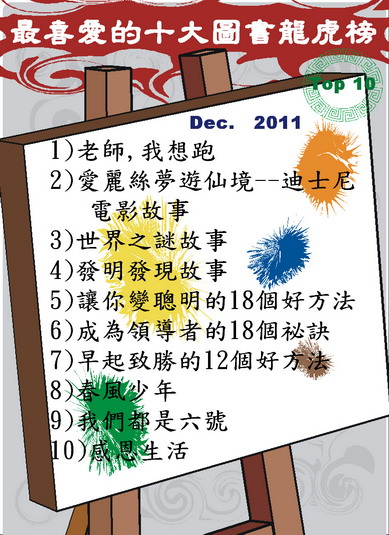 最喜愛的十大圖書龍虎榜
Top 10
Dec. 2011
1)老師,我想跑
2)愛麗絲夢遊仙境--迪士尼
電影故事
3)世界之謎故事
4)發明發現故事
5)讓你變聰明的18個好方法
6)成為領導者的18個祕訣
7)早起致勝的12個好方法
8)春風少年
9)我們都是六號
10)感恩生活